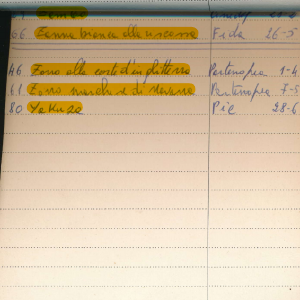 66 Zanna bianca alla riscossa Fida 26-5
46 Zorro alla corte d'inghilterra Partenopea 1-4
61 Zorro marchese di Navarra Partenopea 7-5
80 Yakuza Pic 28-6